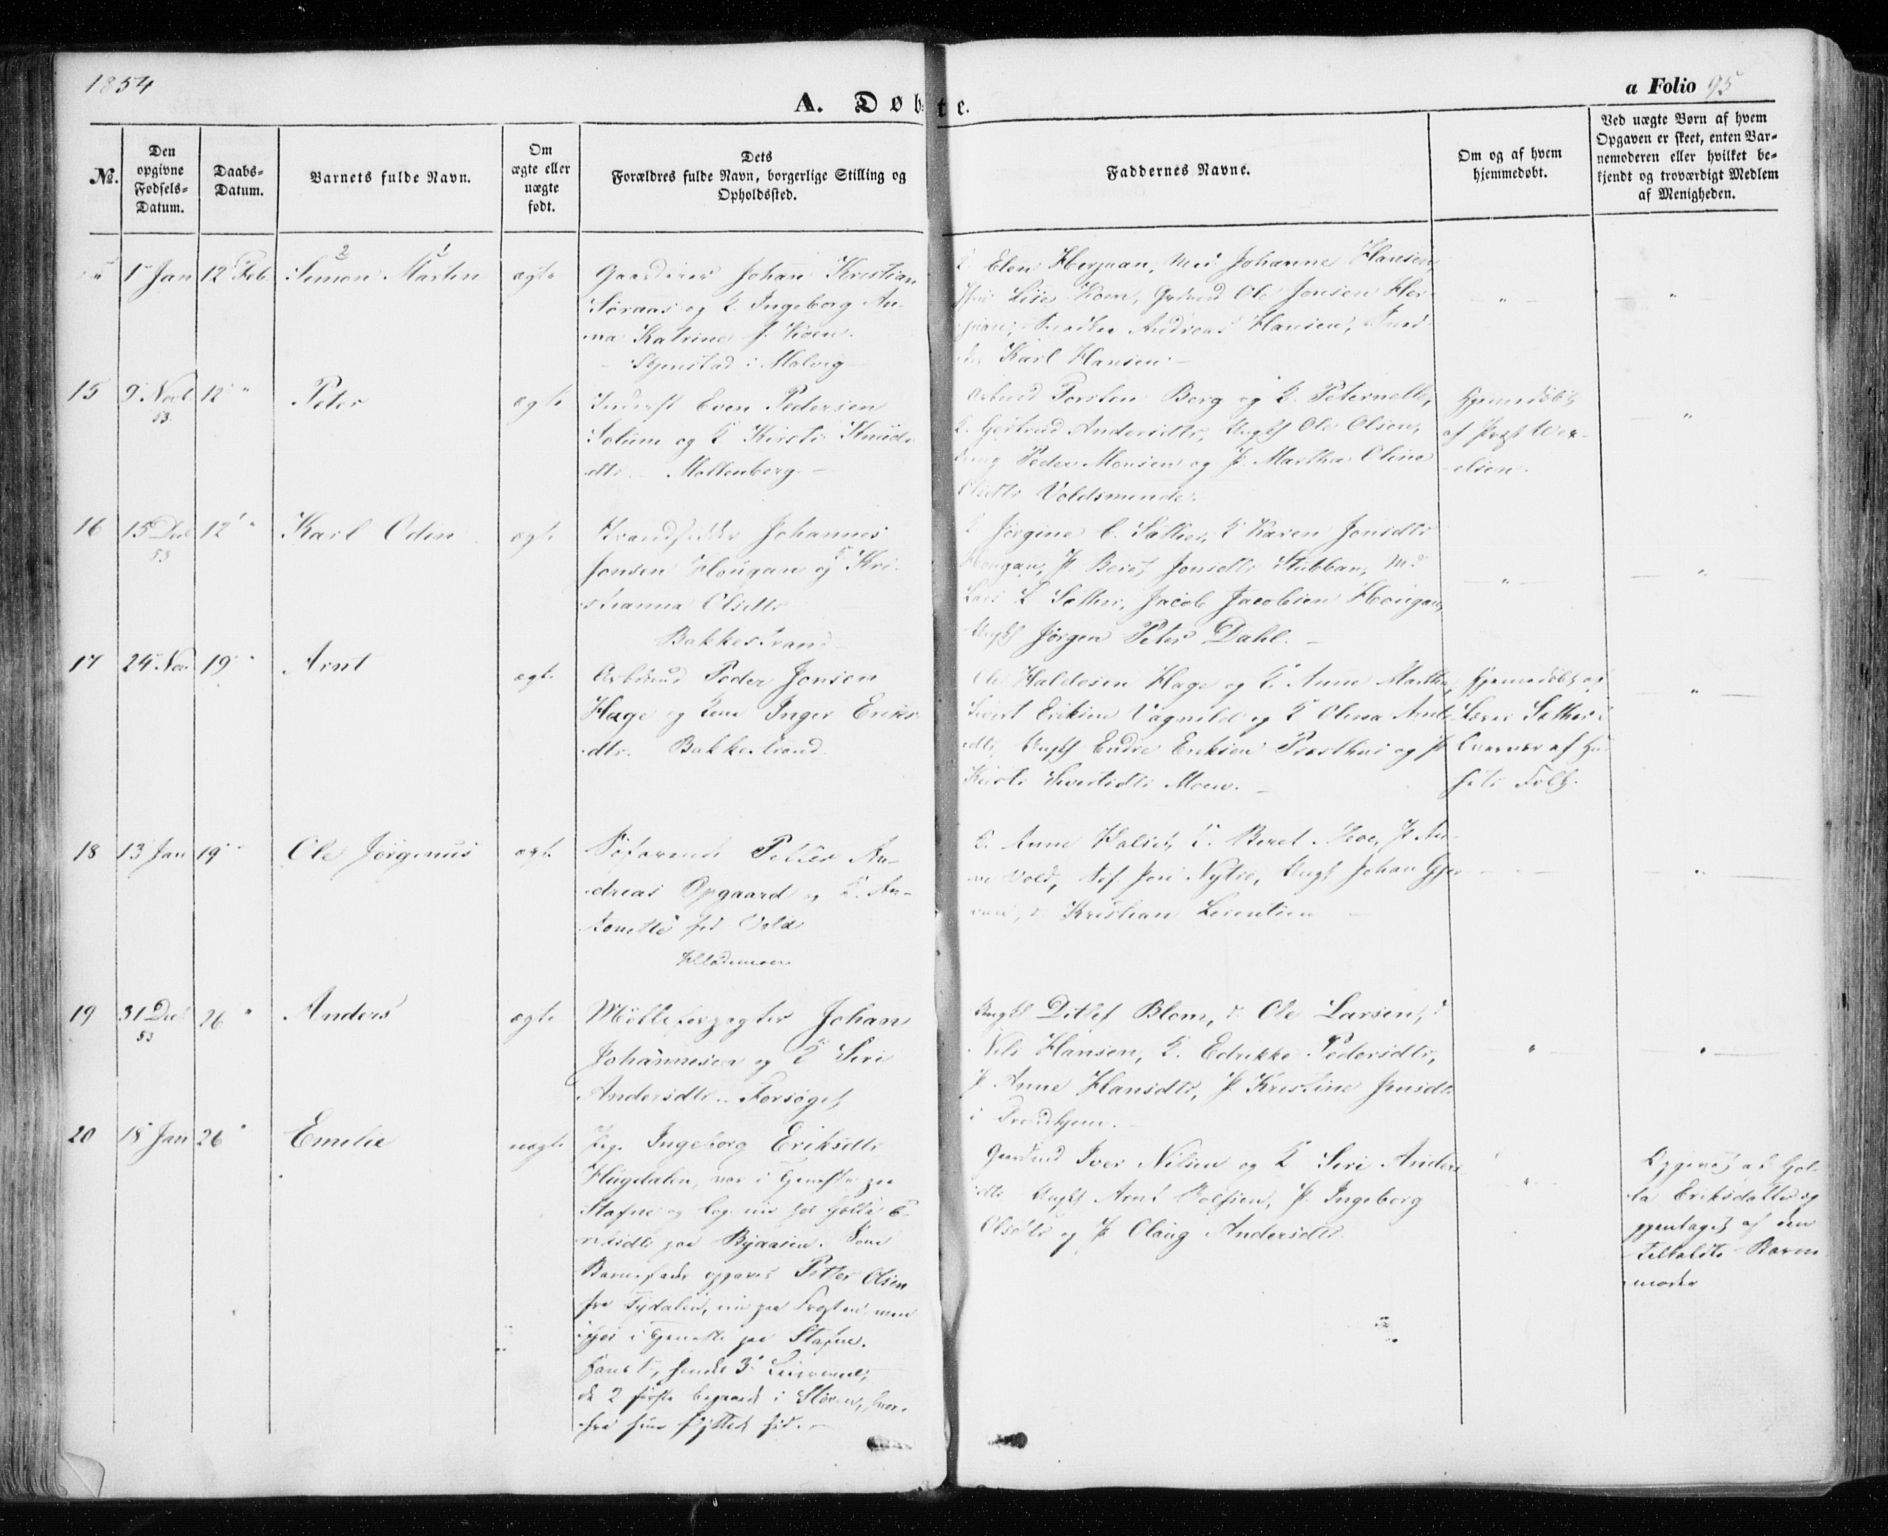 1854
A. Døbte.
a Folio 95
No.
Den opgivne Fødsels-Datum.
Daabs-Datum.
Barnets fulde Navn.
Om ægte eller uægte født.
Dets Forældres fulde Navn, borgerlige Stilling og Opholdssted.
Faddernes Navne.
Om og af hvem hjemmedøbt.
Ved uægte Børn af hvem Opgaven er skeet, enten Barnemoderen eller hvilket bekjendt og troværdigt Medlem af Menigheden.
1 Jan
12 Feb.
2 1
Simon Martin
ægte
Johan Kristian
og K. Ingeborg An-
na Katrine f.
i Malvig
K. Elen Herjuan, Johanne Hansen,
Lise Ole Jonsen Her-
juan, Andreas Hansen,
Karl Hansen
15
9 Novb
53
12 "
Peter
ægte
Inderst Even Pedersen
Solum og K Kirsti Knuds
dtr. Møllenberg.
Torsten Berg og K. Peternelle,
K. Gertrud Andersdtr, Ungk Ole Olsen,
Peder Monsen og P. Martha Olina
Olsdtr Voldsminde.
Hjemmedøbt
af Præst Wex-
elsen.
16
15 Dec
53
12 "
Karl Odin
ægte
Strandsidder Johannes
Jonsen Hougan og K Kri-
stianna Olsdtr
Bakkestrand
K Jørgine C. Sæther, K Karen Jonsdtr
Hougan, P Beret Jonsdtr Stubban,
Lars L Sæther, Jacob Jacobsen Hougan,
Ungk Jørgen Peter Dahl.
17
24 Nov
19 "
Arnt
ægte
Arbmd Peder Jonsen
Hage og Kone Inger Eriks-
dtr. Bakkestrand.
Ole Haldosen Hage og K. Anne Martha,
Sivert Eriksen Vagnild og K Olina Arnts-
dtr, Ungk Endre Eriksen Præsthus og P
Kirsti Sivertsdtr Moen.
Hjemmedøbt af
Lærer Sæther
18
13 Jan
19 "
Ole Jørginus
ægte
Søfarende Petter An-
dreas Opgaard og K. An-
tonette fød Vold
Ladmoen
K. Anne Halset, K. Beret Moe, P. An-
ne Vold, Nytrø, Ungk Johan Gjer-
Kristian Lorentsen
19
31 Dec
53
26 "
Anders
ægte
Mølleforpagter Johan
Johannesen og K Siri
Andersdtr. Forsøget
Ungk Ditlef Blom, d: Ole Larsen, d:
Nils Hansen, K. Edrikke Pedersdtr,
P Anne Hansdtr, P Kristine Jensdtr
i Trondhjem.
20
18 Jan
26 "
Emelie
uægte
Pig. Ingeborg Eriksdtr
Hugdalen, var i Tjeneste paa
Stafne og lag inn hos Golla E-
riksdtr paa Byaasen. Som
Barnefader opgaves Petter Olsen
fra Tydalen, nu paa Frosten men
før i Tjeneste paa Stafne.
Hans 1, hendes 3 Leiermaal,
de 2 første begaaede i Støren, hvor-
fra hun flyttede hid.
Gaardmd Iver Nilsen og K Siri Anders
dtr Ungk Arnt Rolfsen, P. Ingeborg
Olsdtr og P Olaug Andersdtr
Opgivet af Gol-
la Eriksdatter og
gjentaget af den
tiltalte Barne
moder